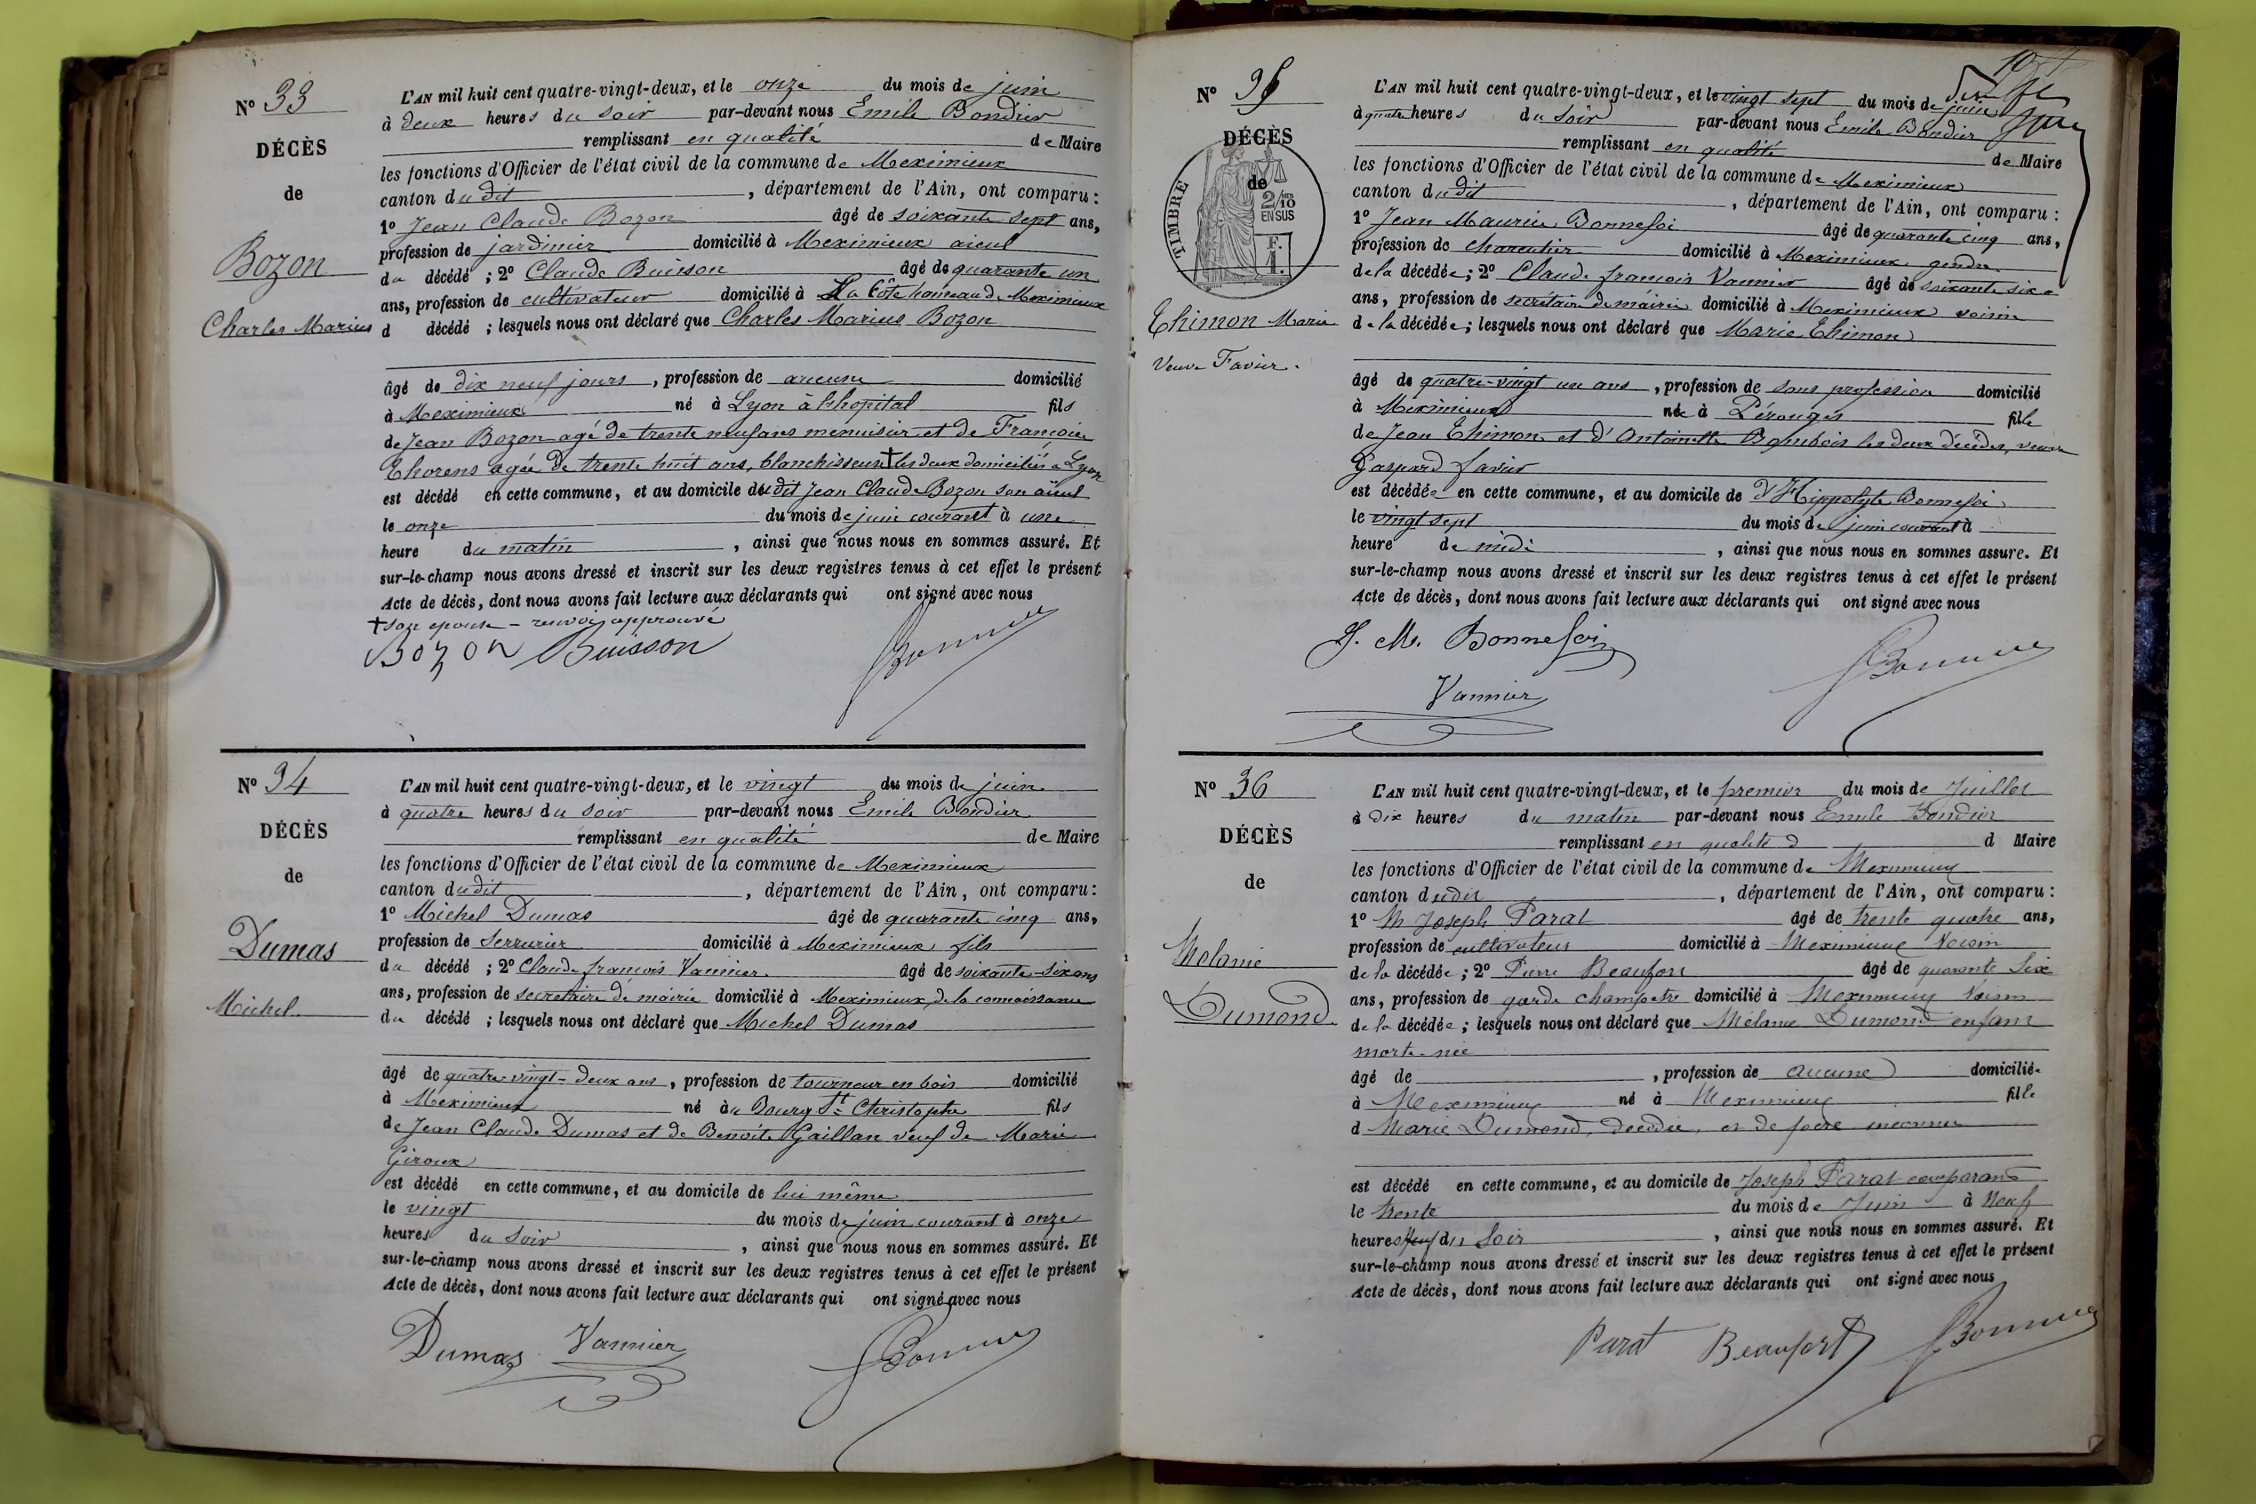 N° 33
DÉCÈS
de
Bozon
Charles Marius
L'AN mil huit cent quatre-vingt-deux, et le onze du mois de juin
à deux heures du soir par-devant nous Emile Bondier
remplissant en qualité de Maire
les fonctions d'Officier de l'état civil de la commune de Meximieux
canton dudit, département de l'Ain, ont comparu :
1° Jean Claude Bozon âgé de soixante sept ans,
profession de jardinier domicilié à Meximieux aieul
du décédé ; 2° Claude Buisson âgé de quarante un
ans, profession de cultivateur domicilié à La Côte hameau de Meximieux
d décédé ; lesquels nous ont déclaré que Charles Marius Bozon
âgé de dix neuf jours, profession de aucune domicilié
à Meximieux né à Lyon à l'hopital fils
de Jean Bozon agé de trente neuf ans menuisier et de Françoise
Thorens agée de trente huit ans, blanchisseuse + les deux domiciliés à Lyon
est décédé en cette commune, et au domicile dudit Jean Claude Bozon son aïeul
le onze du mois de juin courant à une
heure du matin, ainsi que nous nous en sommes assuré. Et
sur-le-champ nous avons dressé et inscrit sur les deux registres tenus à cet effet le présent
Acte de décès, dont nous avons fait lecture aux déclarants qui ont signé avec nous
+ son epouse - renvoi approuvé
Bozon Buisson
N° 34
DÉCÈS
de
Dumas
Michel
L'AN mil huit cent quatre-vingt-deux, et le vingt du mois de juin
à quatre heures du soir par-devant nous Emile Bondier
remplissant en qualité de Maire
les fonctions d'Officier de l'état civil de la commune de Meximieux
canton dudit, département de l'Ain, ont comparu :
1° Michel Dumas âgé de quarante cinq ans,
profession de serrurier domicilié à Meximieux fils
du décédé ; 2° Claude françois Vannier âgé de soixante-six ans
ans, profession de secrétaire de mairie domicilié à Meximieux, de la connaissance
du décédé ; lesquels nous ont déclaré que Michel Dumas
âgé de quatre vingt-deux ans, profession de tourneur en bois domicilié
à Meximieux né à Bourg St Christophe fils
de Jean Claude Dumas et de Benoite Gaillan veuf de Marie
Giroux
est décédé en cette commune, et au domicile de lui même
le vingt du mois de juin courant à onze
heures du soir, ainsi que nous nous en sommes assuré. Et
sur-le-champ nous avons dressé et inscrit sur les deux registres tenus à cet effet le présent
Acte de décès, dont nous avons fait lecture aux déclarants qui ont signé avec nous
Dumas Vannier
N° 35
DÉCÈS
de
TIMBRE
2/10
EN SUS
F.
1.
Thimon Marie
Veuve Favier.
L'AN mil huit cent quatre-vingt-deux, et le vingt sept du mois de juin
à quatre heures du soir par-devant nous Emile Bondier
remplissant en qualité de Maire
les fonctions d'Officier de l'état civil de la commune de Meximieux
canton dudit, département de l'Ain, ont comparu :
1° Jean Maurice Bonnefoi âgé de quarante cinq ans,
profession de charcutier domicilié à Meximieux gendre
de la décédée ; 2° Claude françois Vannier âgé de soixante six
ans, profession de secrétaire de mairie domicilié à Meximieux voisin
de la décédée ; lesquels nous ont déclaré que Marie Thimon
âgé de quatre-vingt un ans, profession de sans profession domicilié
à Meximieux née à Pérouges fille
de Jean Thimon et d'Antoinette les deux décédés, veuve
Gaspard favier
est décédée en cette commune, et au domicile de d'Hippolyte Bonnefoi
le vingt sept du mois de juin courant à
heure de midi, ainsi que nous nous en sommes assuré. Et
sur-le-champ nous avons dressé et inscrit sur les deux registres tenus à cet effet le présent
Acte de décès, dont nous avons fait lecture aux déclarants qui ont signé avec nous
J. M. Bonnefoi
Vannier
N° 36
DÉCÈS
de
Melanie
Dumond
L'AN mil huit cent quatre-vingt-deux, et le premier du mois de Juillet
à dix heures du matin par-devant nous Emile Bondier
remplissant en qualité d d Maire
les fonctions d'Officier de l'état civil de la commune de Meximieux
canton dudit, département de l'Ain, ont comparu :
1° M Joseph Parat âgé de trente quatre ans,
profession de cultivateur domicilié à Meximieux Voisin
de la décédée ; 2° Pierre Beaufort âgé de quarante six
ans, profession de garde champetre domicilié à Meximieux Voisin
de la décédée ; lesquels nous ont déclaré que Mélanie Dumond enfant
morte-née
âgé de, profession de aucune domicilié
à Meximieux né à Meximieux fille
d Marie Dumond, décédée, et de père inconnu
est décédé en cette commune, et au domicile de Joseph Parat comparant
le trente du mois de Juin à Neuf
heures du Soir, ainsi que nous nous en sommes assuré. Et
sur-le-champ nous avons dressé et inscrit sur les deux registres tenus à cet effet le présent
Acte de décès, dont nous avons fait lecture aux déclarants qui ont signé avec nous
Parat Beaufort